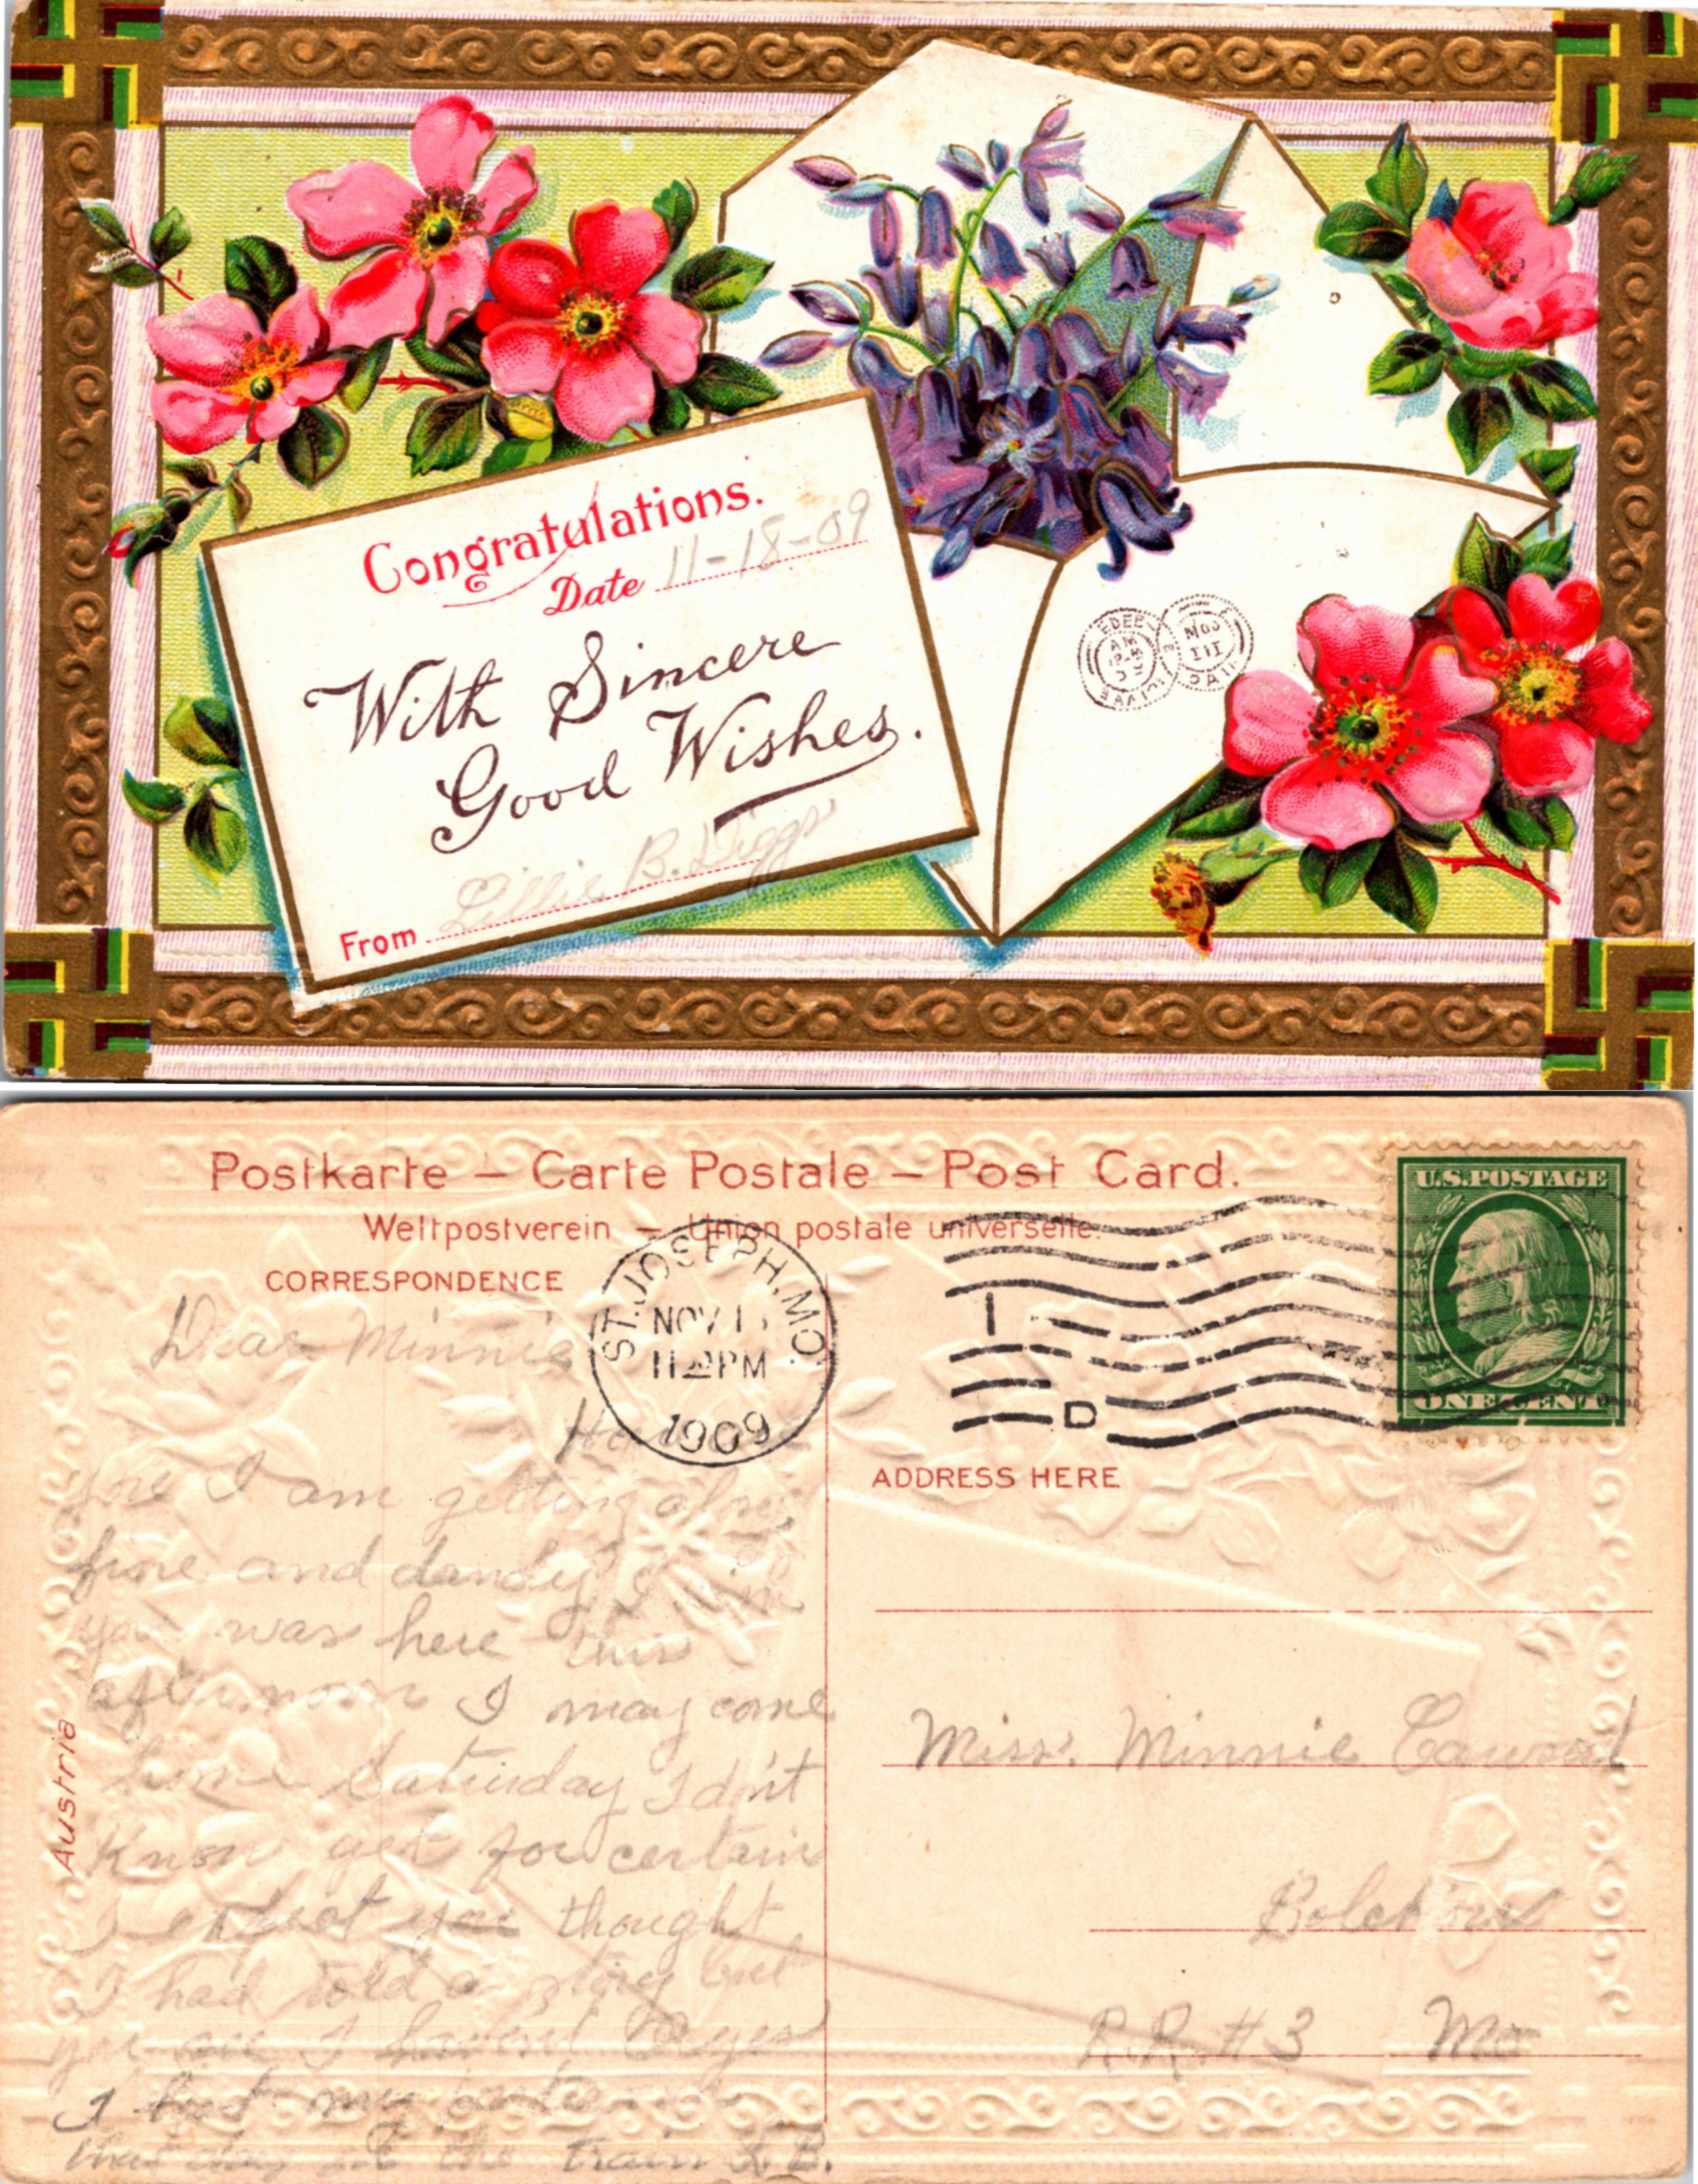 Congratulations.
Date 11-18-09
With Sincere
Good Wishes.
From Lillie B. Diggs
Postkarte – Carte Postale – Post Card.
Weltpostverein – Union postale universelle.
CORRESPONDENCE
ST. JOSEPH, MO.
NOV 1
11 PM
1909
D
U.S. POSTAGE
ONE CENT
ADDRESS HERE
Dear Minnie
How are
you I am getting along
fine and dandy I wish
you was here this
afternoon I may come
home Saturday I dn't
know yet for certain
I expect you thought
I had told a story but
you see I havent
I
that day at the train L.B.
Austria
Miss. Minnie
Bolckow
R.R. #3 Mo